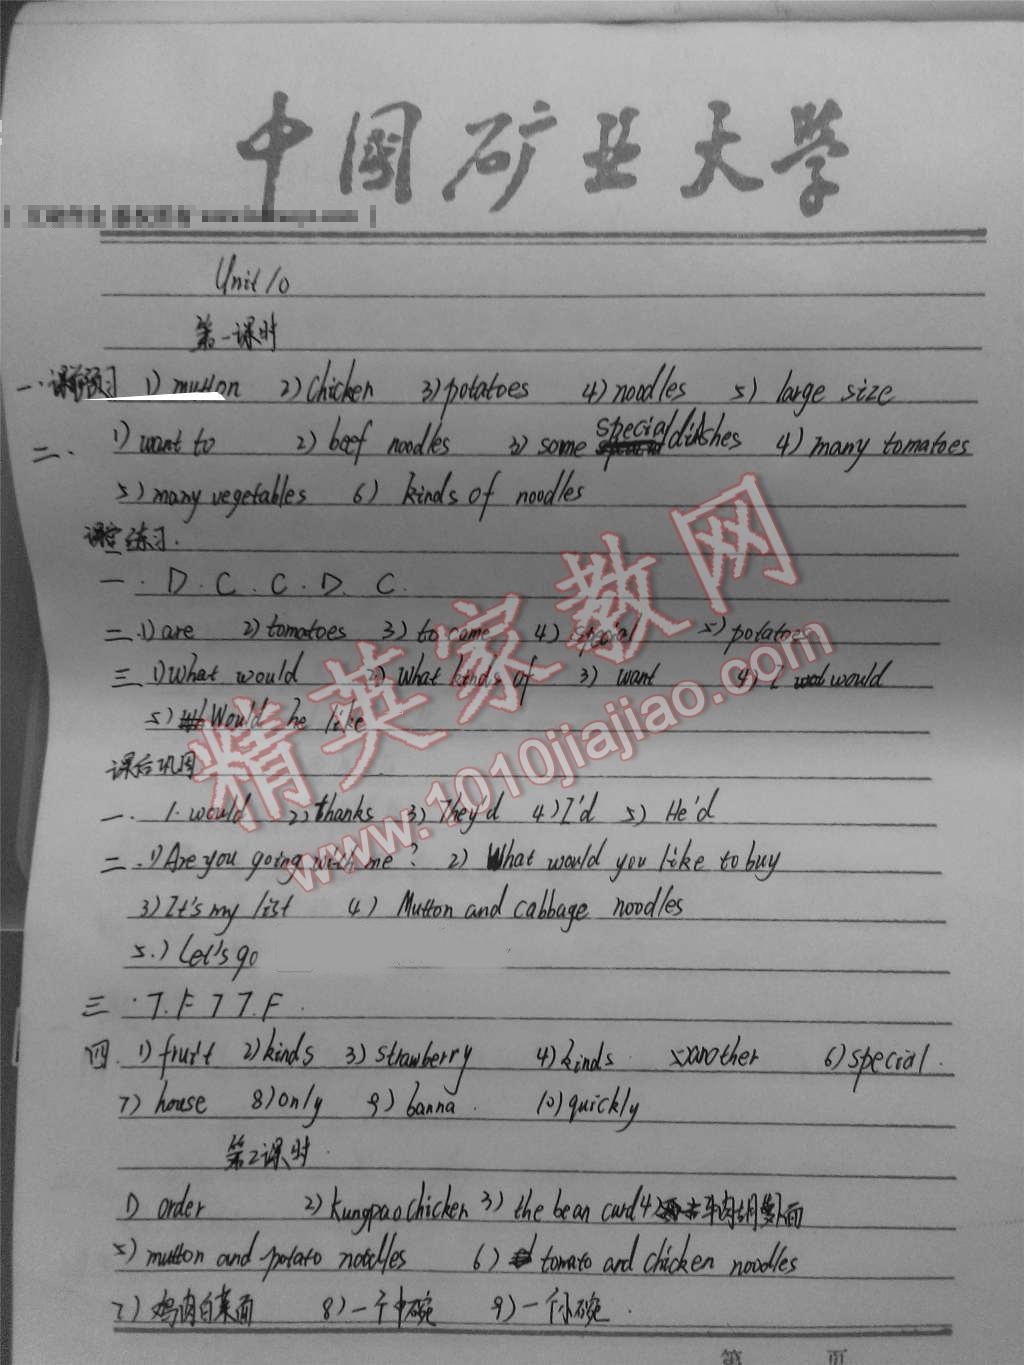 中国矿业大学
Unit 10
第一课时
一.课前预习 1) mutton 2) Chicken 3) potatoes 4) noodles 5) large size
二. 1) want to 2) beef noodles 3) some special dishes 4) many tomatoes
5) many vegetables 6) kinds of noodles
课堂练习.
一. D. C. C. D. C.
二.1) are 2) tomatoes 3) to come 4) special 5) potatoes
三 1) What would 2) What kinds of 3) want 4) I would
5) Would he like
课后巩固
一. 1. would 2) thanks 3) They'd 4) I'd 5) He'd
二.1) Are you going with me? 2) What would you like to buy
3) It's my list 4) Mutton and cabbage noodles
5.) Let's go
三.T.F T T.F.
四.1) fruit 2) kinds 3) strawberry 4) kinds. 5) another 6) special.
7) house 8) only 9) banna. 10) quickly
第2课时.
1) order 2) kungpao chicken 3) the bean curd 4) 牛肉胡萝卜面
5) mutton and potato noodles 6) tomato and chicken noodles
7) 鸡肉白菜面 8) 一个中碗 9) 一个小碗.
第 页
精英家教网
www.1010jiajiao.com